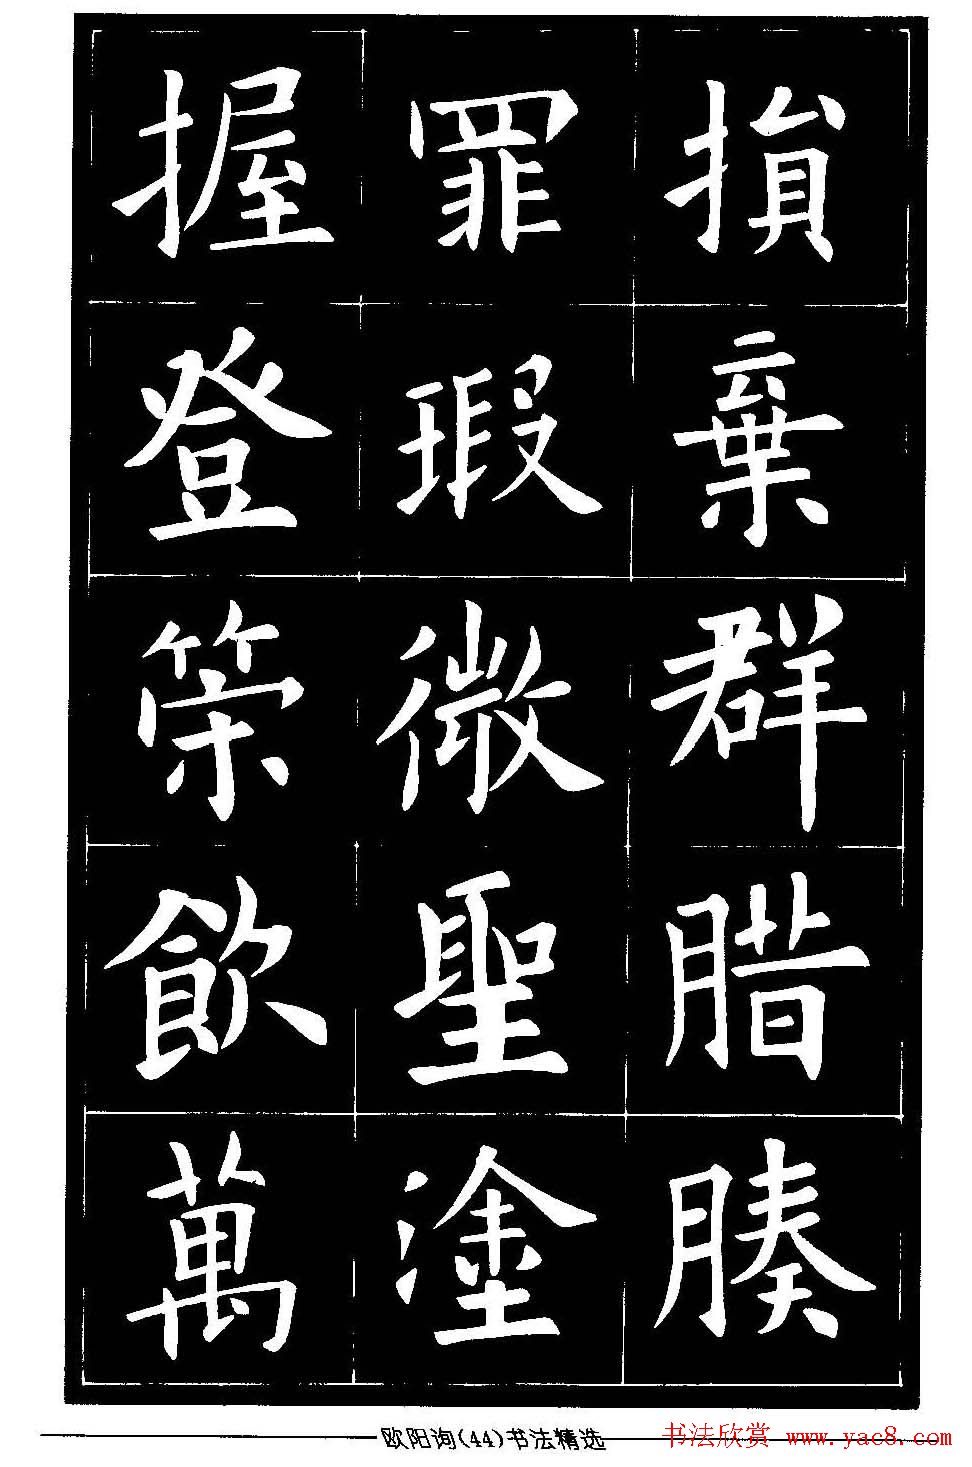 損棄群腊腠
罪瑕微聖塗
握登策飲萬
欧阳询(44)书法精选
书法欣赏 www.yac8.com